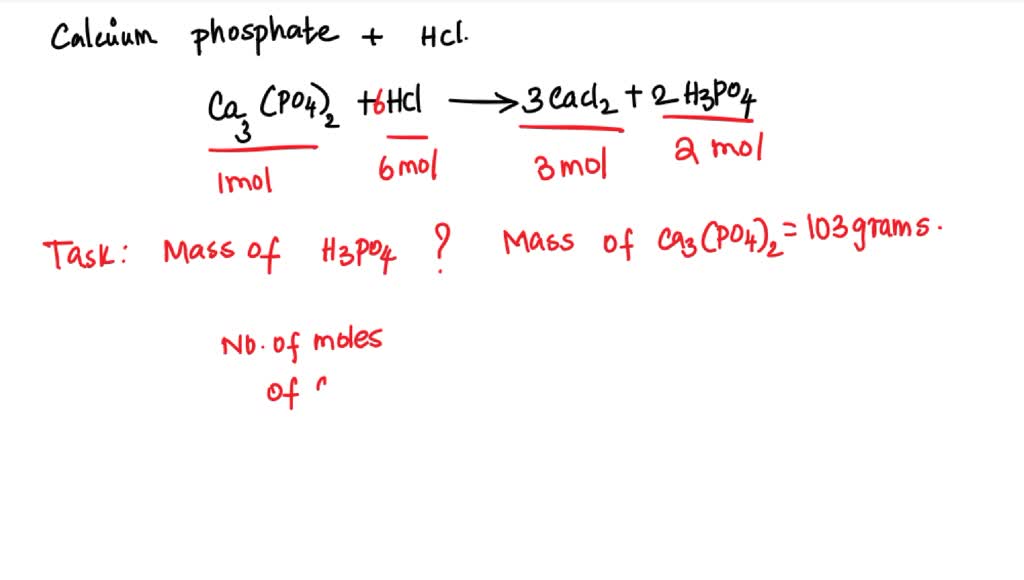 Calcium phosphate + HCl.
Ca3(PO4)2 + 6HCl ⟶ 3CaCl2 + 2H3PO4
1mol 6mol 3mol 2 mol
Task: Mass of H3PO4 ? Mass of Ca3(PO4)2 = 103grams.
No. of moles
of